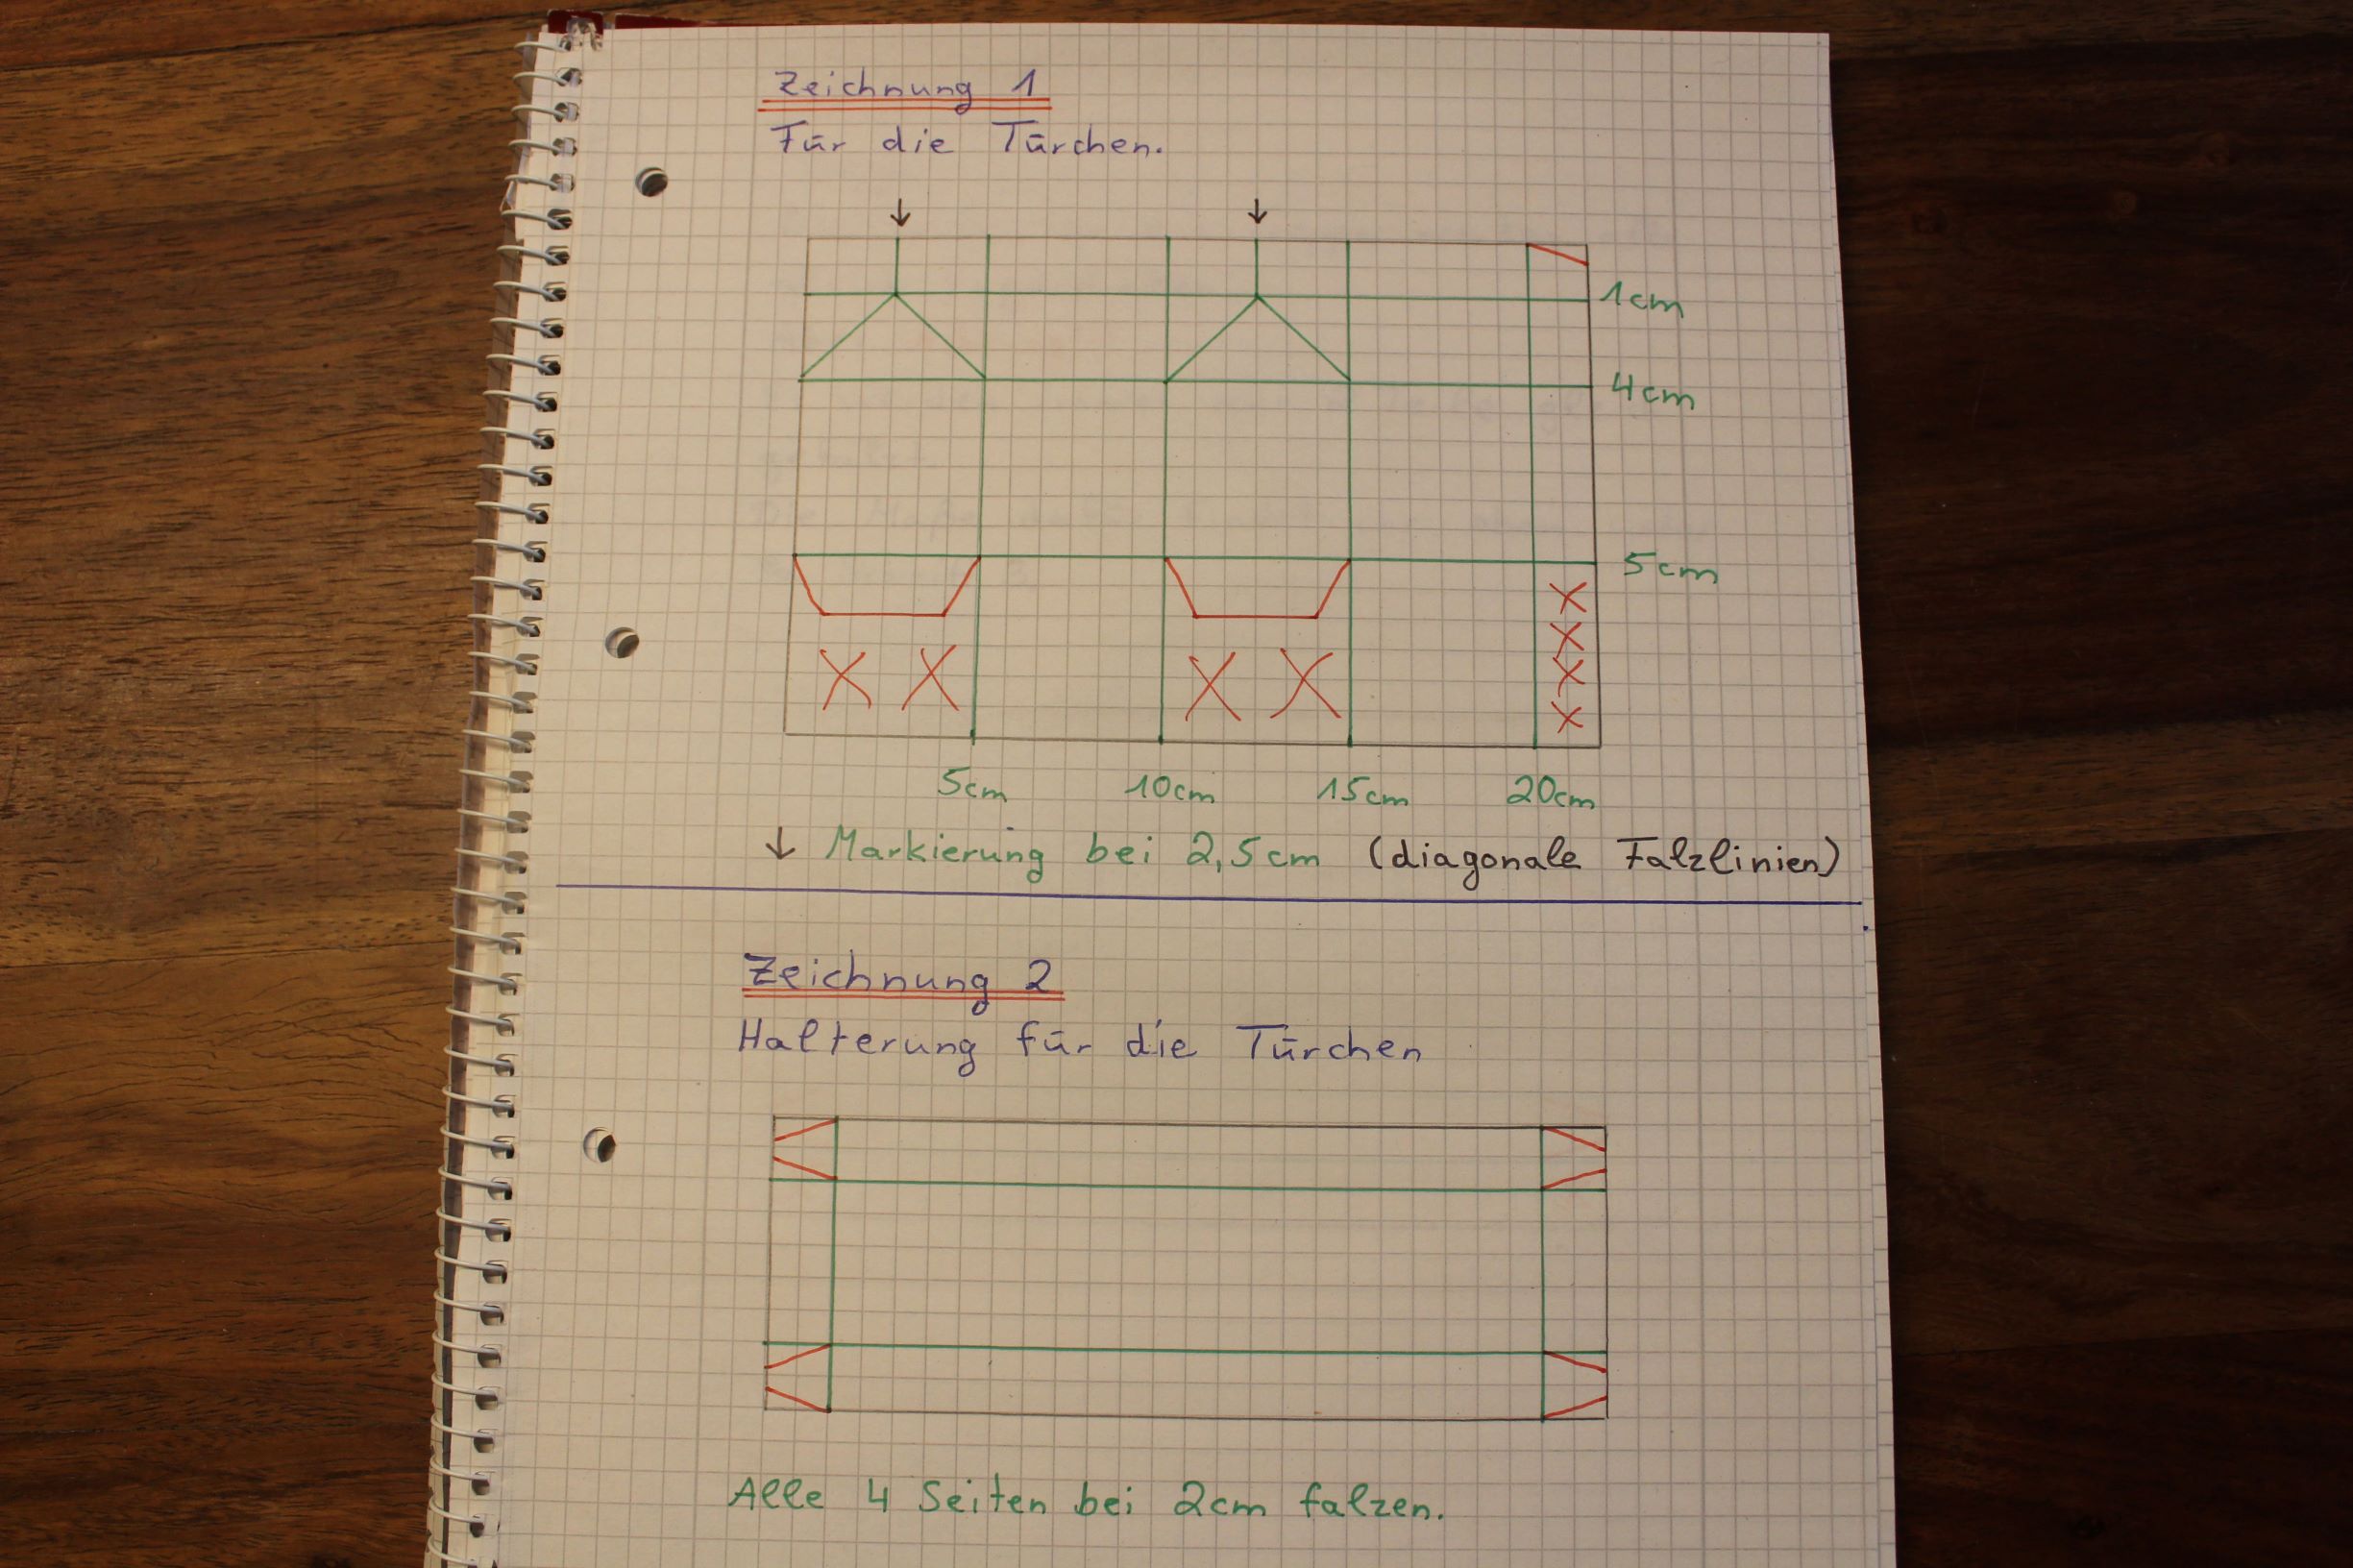 Zeichnung 1
Für die Türchen.
1cm
4cm
5cm
X X X X X
X
X
X
5cm 10cm 15cm 20cm
↓ Markierung bei 2,5cm (diagonale Falzlinien)
Zeichnung 2
Halterung für die Türchen
Alle 4 Seiten bei 2cm falzen.